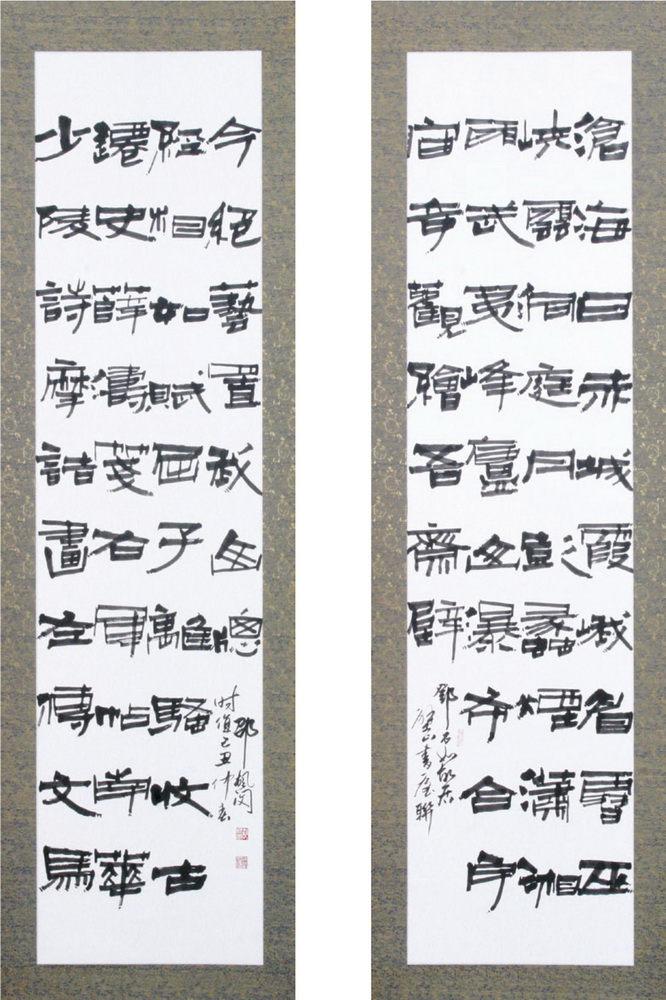 滄海日赤城霞峨眉雪巫
峽雲洞庭月彭蠡煙瀟湘
雨武夷峰廬山瀑布合宇
宙奇觀繪吾齋壁
鄧石如故居
碧山書屋聯
少陵詩摩詰畫左傳文馬
遷史薛濤箋右軍帖南華
經相如賦屈子離騷收古
今絕藝置我山窗
时值己丑仲春
邵